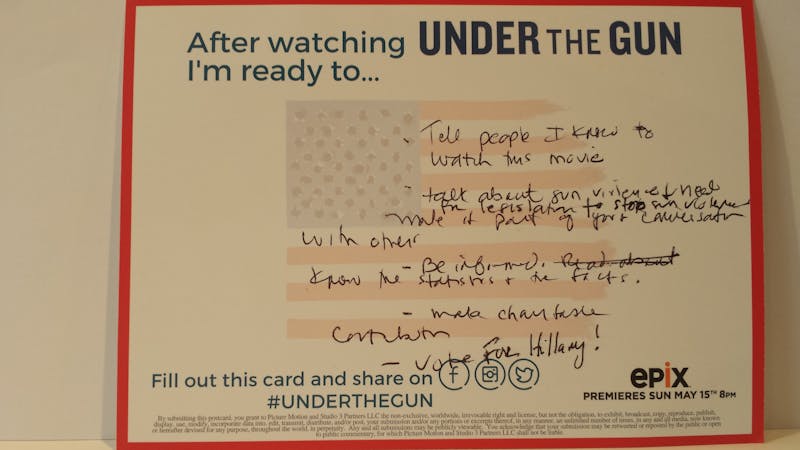 After watching UNDER THE GUN
I'm ready to...
- Tell people I know to
watch this movie
- talk about gun violence & need
for legislation to stop gun violence
- make it part of your conversation
with others
- Be informed. Read about
Know the statistics & the facts.
- make charitable
Contribution
- Vote for Hillary!
Fill out this card and share on
#UNDERTHEGUN
epix
PREMIERES SUN MAY 15TH 8PM
By submitting this postcard, you grant to Picture Motion and Studio 3 Partners LLC the non-exclusive, worldwide, irrevocable right and license, but not the obligation, to exhibit, broadcast, copy, reproduce, publish,
display, use, modify, incorporate data into, edit, transmit, distribute, and/or post, your submission and/or any portions or excerpts thereof, in any manner, an unlimited number of times, in any and all media, now known
or hereafter devised for any purpose, throughout the world, in perpetuity. Any and all submissions may be publicly viewable. You acknowledge that your submission may be retweeted or reposted by the public or open
to public commentary, for which Picture Motion and Studio 3 Partners LLC shall not be liable.